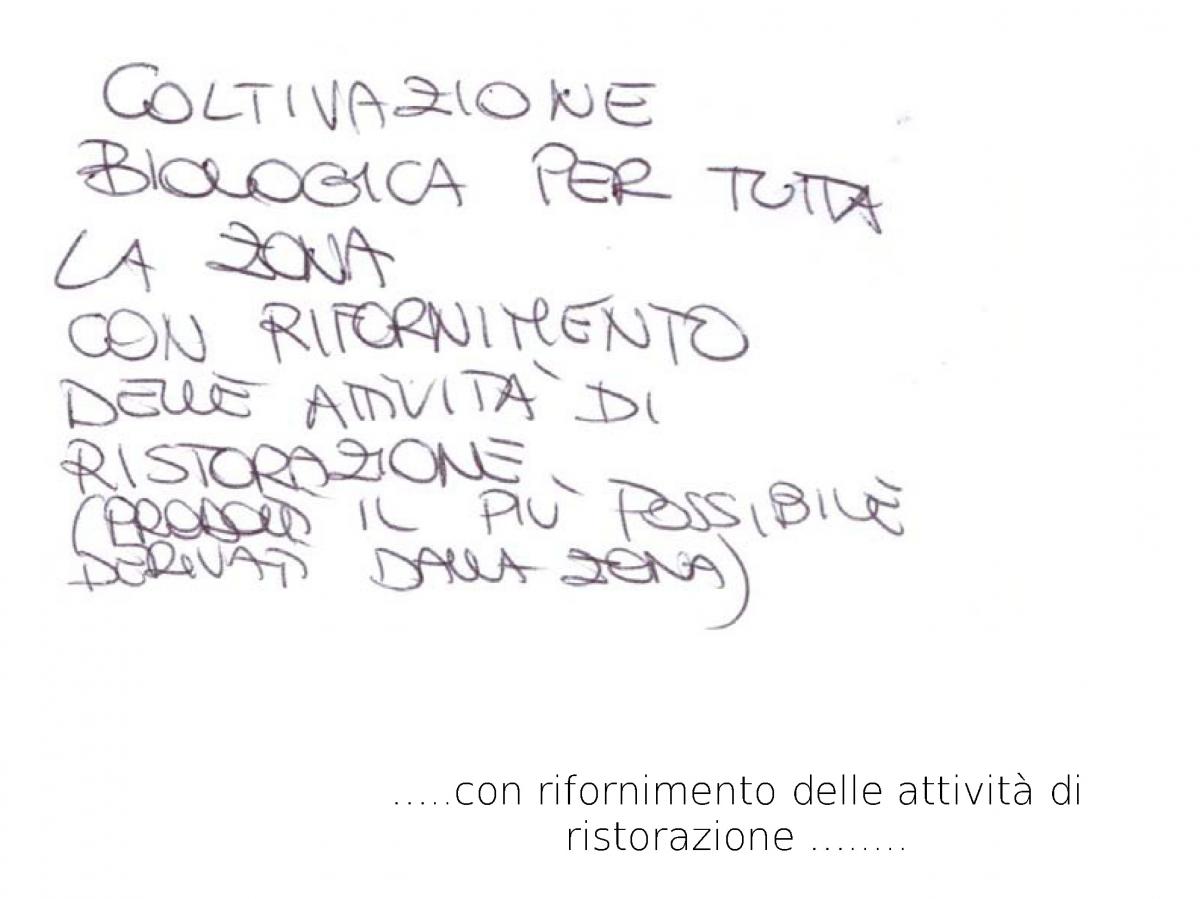 COLTIVAZIONE
BIOLOGICA PER TUTTA
LA ZONA
CON RIFORNIMENTO
DELLE ATTIVITÀ DI
RISTORAZIONE
(PRODOTTI IL PIÙ POSSIBILE
DERIVATI DALLA ZONA)
.....con rifornimento delle attività di
ristorazione ........